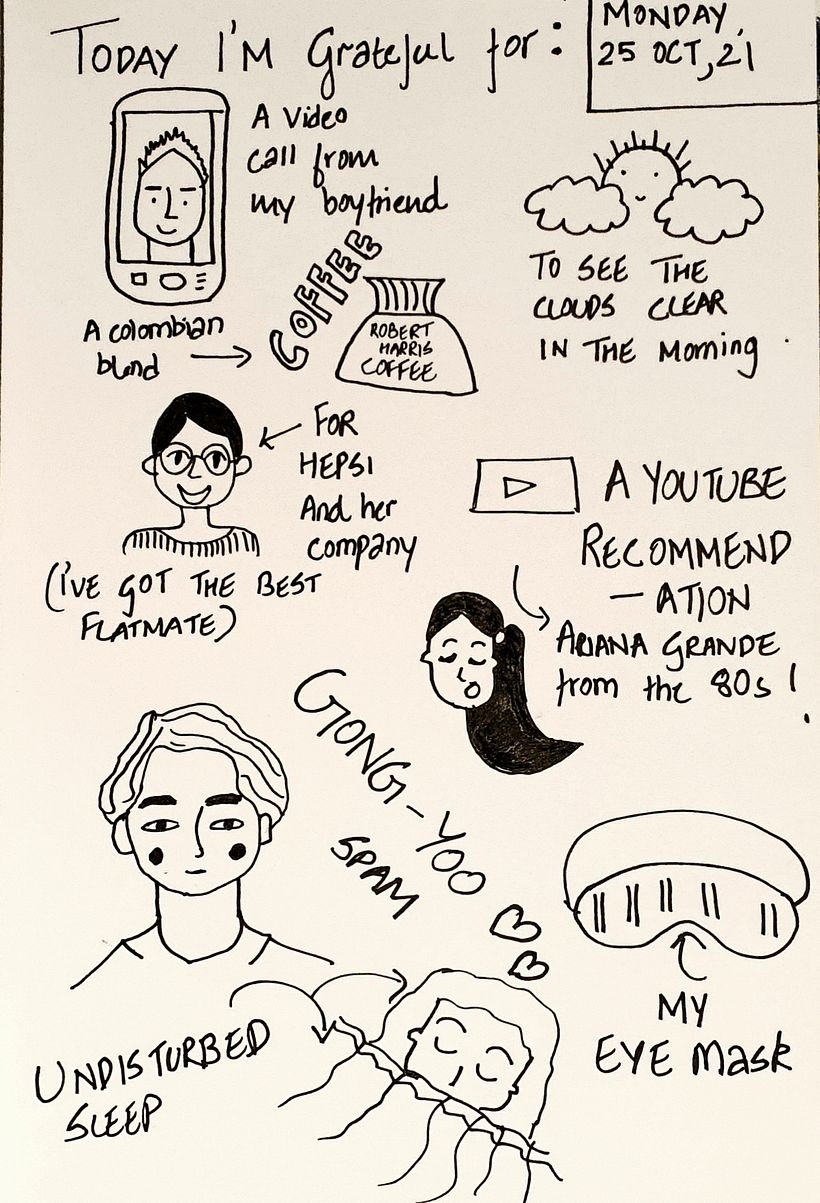 TODAY I'M Grateful for:
MONDAY,
25 OCT, 21
A Video
call from
my boyfriend
TO SEE THE
CLOUDS CLEAR
IN THE Morning
A colombian
blend
COFFEE
ROBERT
HARRIS
COFFEE
FOR
HEPSI
And her
company
(I'VE GOT THE BEST
FLATMATE)
A YOUTUBE
RECOMMEND
- ATION
ARIANA GRANDE
from the 80s!
GONG-YOO
SPAM
MY
EYE MasK
UNDISTURBED
SLEEP